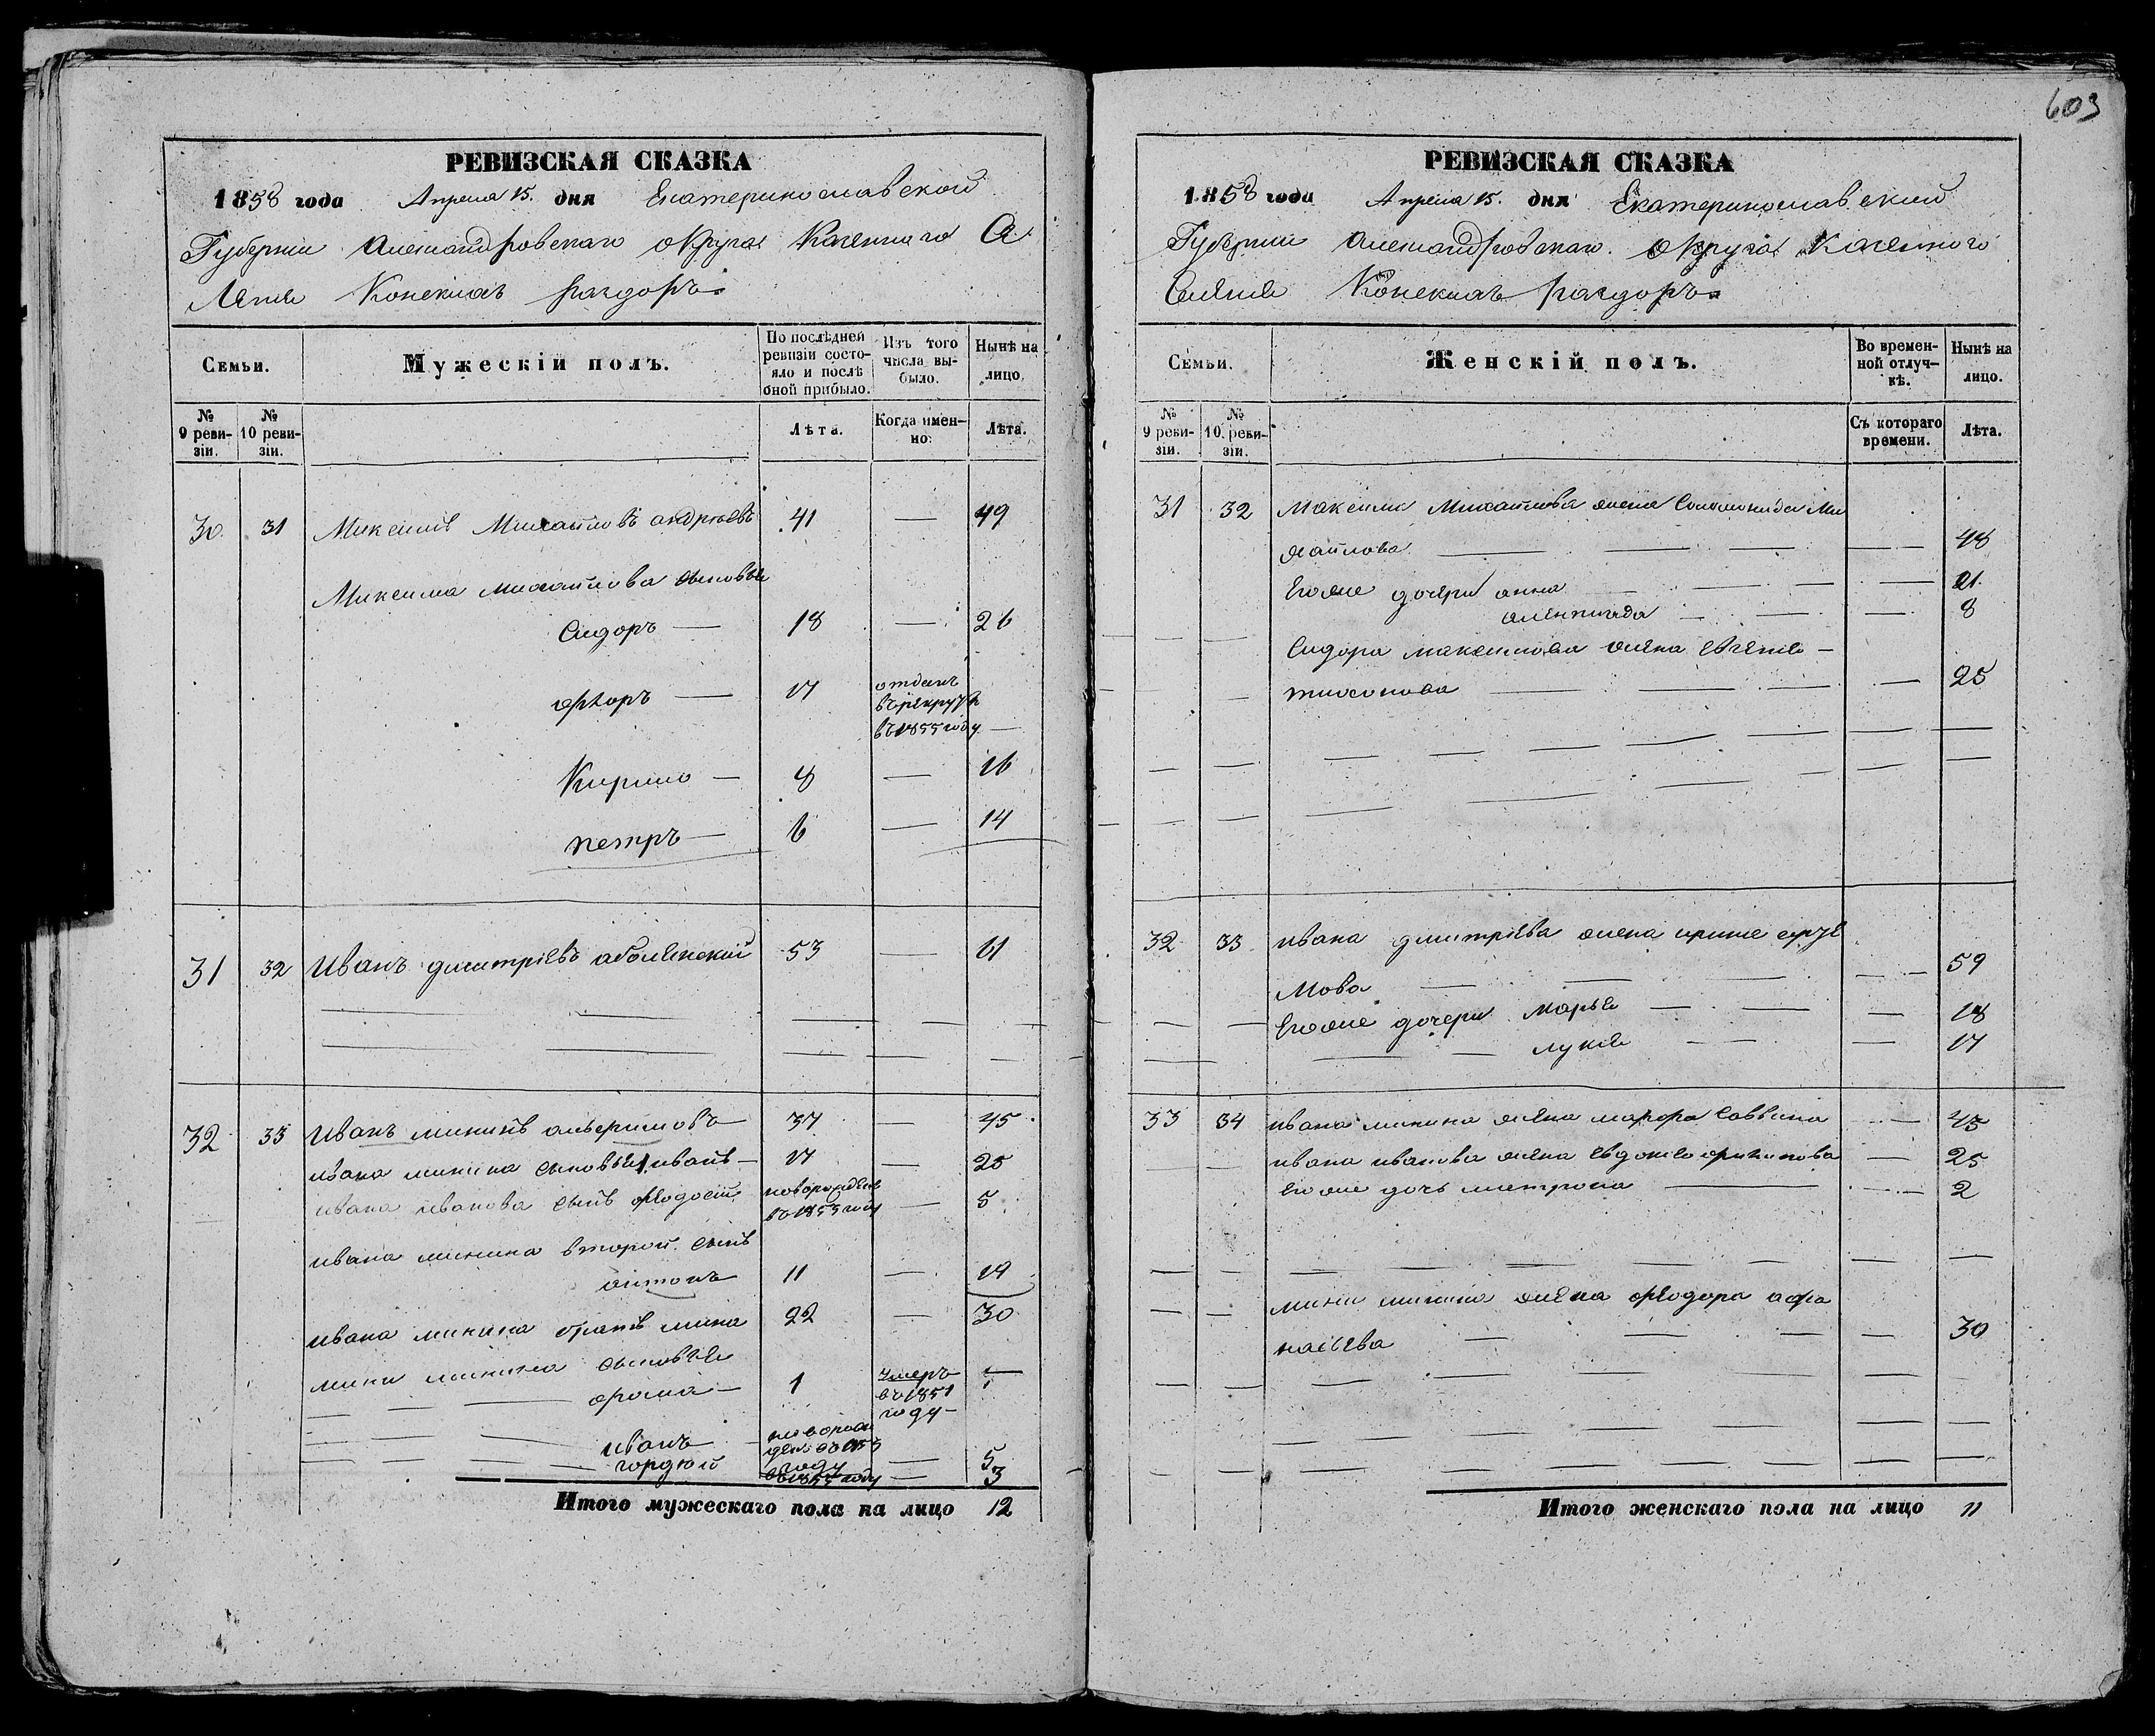 РЕВИЗСКАЯ СКАЗКА
1858 года Апреля 15. дня Екатеринославской
Губернiи Александровскаго округа Казеннаго
Конскихъ раздоръ
Семьи. Мужескiй полъ. По послѣдней ревизiи состояло и послѣ оной прибыло. Изъ того числа выбыло. Нынѣ на лицо.
№ 9 ревизiи. № 10 ревизiи. Лѣта. Когда именно: Лѣта.
30 31 Максимъ Михайловъ андрѣевъ 41 — 49
Максима михайлова сыновья
Сидоръ — 18 — 26
ѳѣдоръ — 17 отданъ въ рекруты въ 1855 году —
Кирило — 8 — 16
петръ — 6 — 14
31 32 Иванъ дмитрiевъ аболенскiй 53 — 61
32 33 Иванъ мининъ 37 — 45
ивана минина сыновья 1 иванъ — 17 — 25
ивана иванова сынъ ѳеодосiй новорожденъ въ 1853 году — 5
ивана минина второй сынъ
антонъ 11 — 19
ивана минина братъ мина 22 — 30
мины минина сыновья
фома — 1 умеръ въ 1851 году —
иванъ — новорожденъ въ 1853 году — 5
гордѣй въ 1855 году — 3
Итого мужескаго пола на лицо 12
603
РЕВИЗСКАЯ СКАЗКА
1858 года Апреля 15. дня Екатеринославский
Губернiи Александровскаго округа Казенного
Селенiя Конскихъ раздоръ
Семьи. Женскiй полъ. Во временной отлучкѣ. Нынѣ на лицо.
№ 9 ревизiи. № 10. ревизiи. Съ котораго времени. Лѣта.
31 32 Максима Михайлова жена Соломонида Ми
хайлова — — — — 48
Егоже дочери анна — — — 21
— — — 8
Сидора максимова жена Евгенiя —
— — — — 25
32 33 ивана дмитрiева жена ирина ефре
мова — — — 59
Егоже дочери марья — — — 18
— — лукiя — — — 17
33 34 ивана минина жена марфа Саввина — 45
ивана иванова жена Евдокiя — 25
Егоже дочь матрона — — 2
мины минина жена ѳеодора афа
насiева — — — — 30
Итого женскаго пола на лицо 11